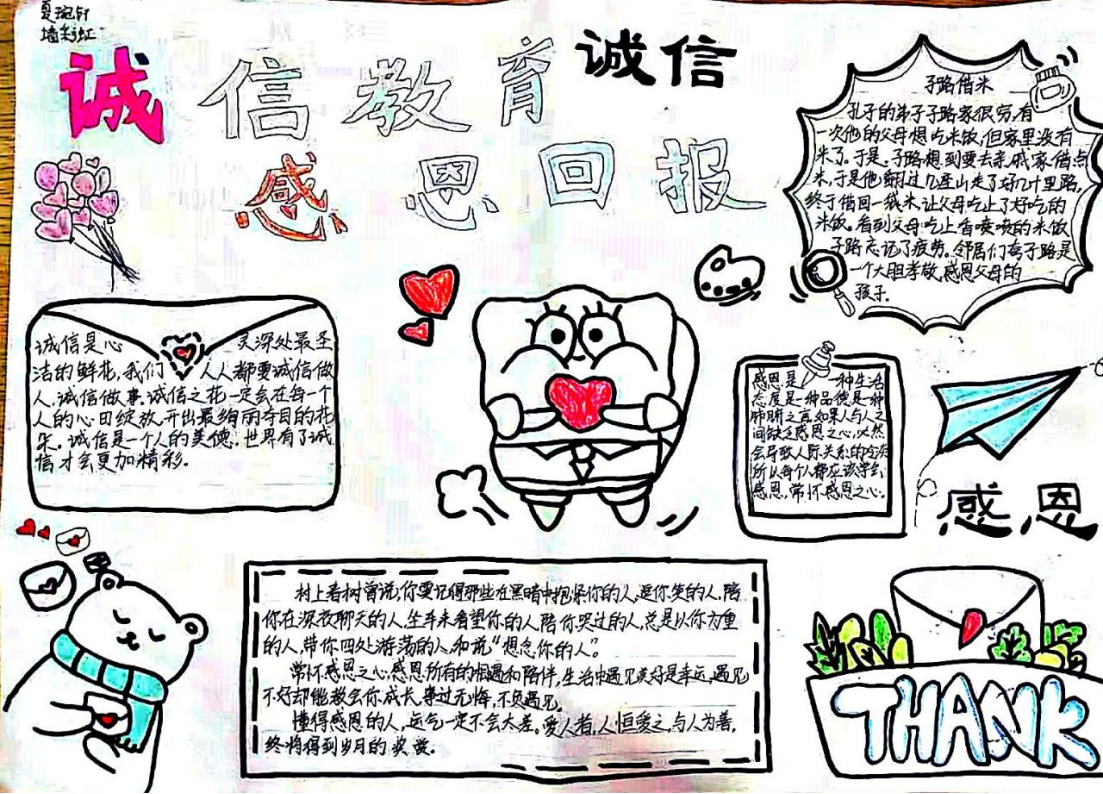 夏琬钧
墙彩虹
诚信教育
诚信
感恩回报
子路借米
孔子的弟子子路家很穷,有
一次他的父母想吃米饭,但家里没有
米了。于是,子路想到要去亲戚家借点
米,于是他翻过几座山走了好几十里路,
终于借回一袋米,让父母吃上了好吃的
米饭。看到父母吃上香喷喷的米饭
子路忘记了疲劳。邻居们夸子路是
一个大胆孝敬,感恩父母的
孩子.
诚信是心灵深处最圣
洁的鲜花,我们人人都要诚信做
人,诚信做事.诚信之花一定会在每一个
人的心田绽放,开出最绚丽夺目的花
朵。诚信是一个人的美德.世界有了诚
信才会更加精彩.
感恩是一种生活
态度是一种品德是一种
肺腑之言.如果人与人之
间缺乏感恩之心,必然
会导致人际关系的冷淡
所以每个人都应该学会
感恩,常怀感恩之心。
感恩
村上春树曾说,你要记得那些在黑暗中抱紧你的人,逗你笑的人,陪
你在深夜聊天的人,坐车来看望你的人陪你哭过的人,总是以你为重
的人,带你四处游荡的人和说“想念你的人”
常怀感恩之心,感恩所有的相遇和陪伴,生活中遇见美好是幸运,遇见
不好却能教会你成长,来过无悔,不负遇见。
懂得感恩的人,运气一定不会太差。爱人者,人恒爱之,与人为善,
终将得到岁月的奖赏.
THANK